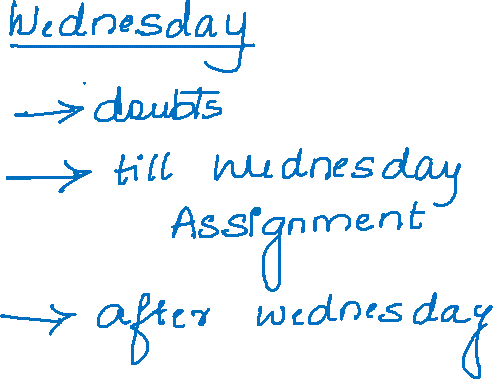 Wednesday
→ doubts
→ till Wednesday
Assignment
→ after wednesday